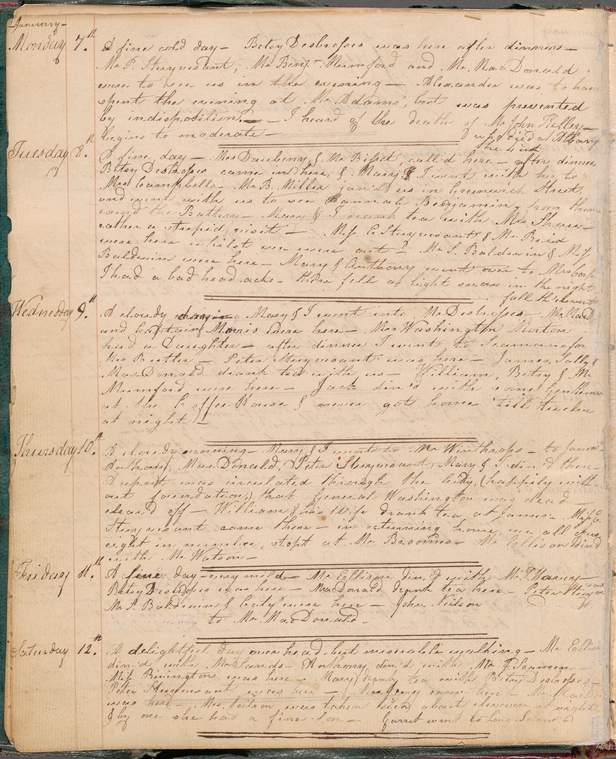 January
Monday 7.th A fine cold day - Betsy Desbrosses was here after dinner -
Mr P. Stuyvesant, Mr Benj. Mumford and Mr MacDonald
came to see us in the evening - Alexander was to have
spent the evening at Mr Adams, but was prevented
by indisposition. - I heard of the death of Mr John Kelley -
begins to moderate - who died at Albany
this week
Tuesday 8.th A fine day - Mrs & Mr Bisset call'd here - after dinner
Betsy Desbrosses came in here, & Mary & I went with her to
Mrs Campbells - Mr B. Miller join'd us in Greenwich Street,
and went with us to see Hannah from there
round the Battery - Mary & I drank tea with Mrs
rather a stupid visit - Miss E. Stuyvesant & Mr
were here whilst we were out - Mr S. Baldwin & Miss
Baldwin were here - Mary & Anthony went over to Mrs
I had a bad head ache - There fell a light snow in the night
Wednesday 9.th A cloudy day - Mary & I went into Mr Desbrosses -
and Captain Morris were here - Mrs Washington Morton
had a Daughter - after dinner I went to Seamans for
Mrs Butler - Peter Stuyvesant was here - James, Sally &
MacDonald drank tea with us - William, Betsy & Mr
Mumford were here - Jack din'd with some Gentlemen
at the Coffee House & never got home 'till twelve
at night! -
Thursday 10.th A cloudy morning - Mary & I went to Mr Winthrops - to James's
Anthony, MacDonald, Peter Stuyvesant, Mary & I din'd there -
A report was circulated through the City, (happily with-
out foundation) that General Washington was dead
- William & his wife drank tea at James's - Miss
Stuyvesant came there - in returning home, we all
eight in number, stopt at Mr Broomes - Mr Ellison din'd
with Mr Watson -
Friday 11.th A fine day - very mild - Mr Ellison din'd with Mr T.
Betsy Desbrosses was here - MacDonald drank tea here - Peter
Mr S. Baldwin & lady were here - John
to Mr MacDonald -
Saturday 12.th A delightful day over head - but miserable walking - Mr Ellison
din'd with Mr Sands - Anthony din'd with Mr G.
Miss was here - Mary drank tea with Betsy Desbrosses -
Peter Stuyvesant was here -
was here - Mrs was taken about eleven at night
& by one she had a fine Son - Garret went to Long Island